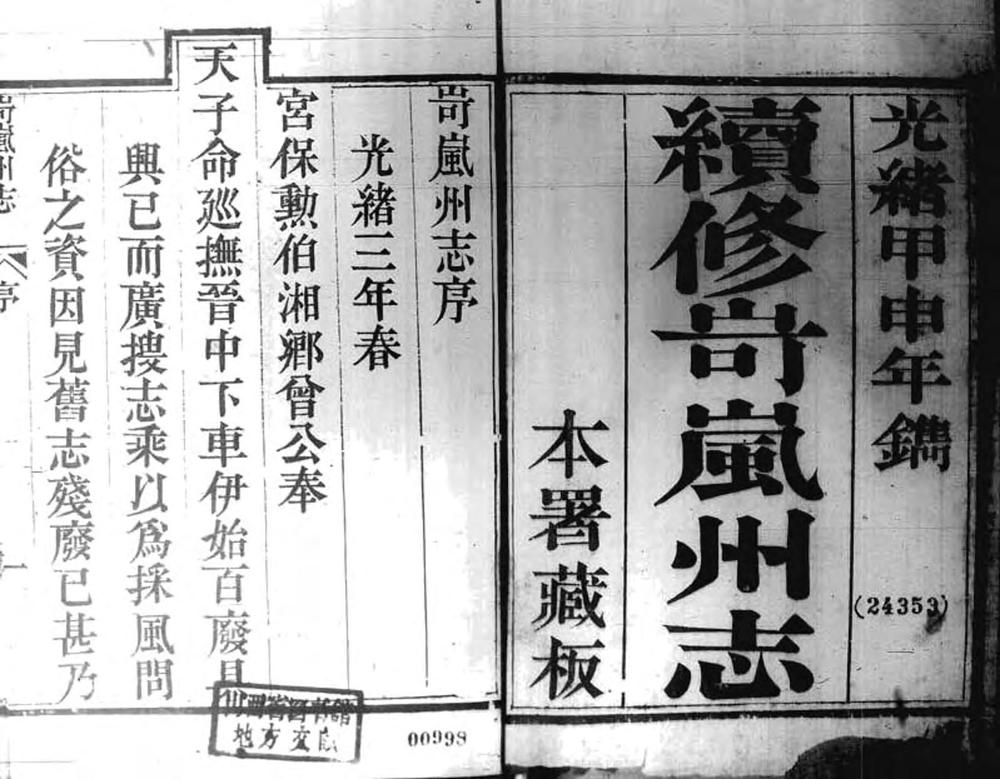 光緒甲申年鐫
續修岢嵐州志
本署藏板
(24353)
岢嵐州志序
光緒三年春
宮保勳伯湘鄉曾公奉
天子命巡撫晉中下車伊始百廢具
興已而廣搜志乘以爲採風問
俗之資因見舊志殘廢已甚乃
岢嵐州志
序
一
00998